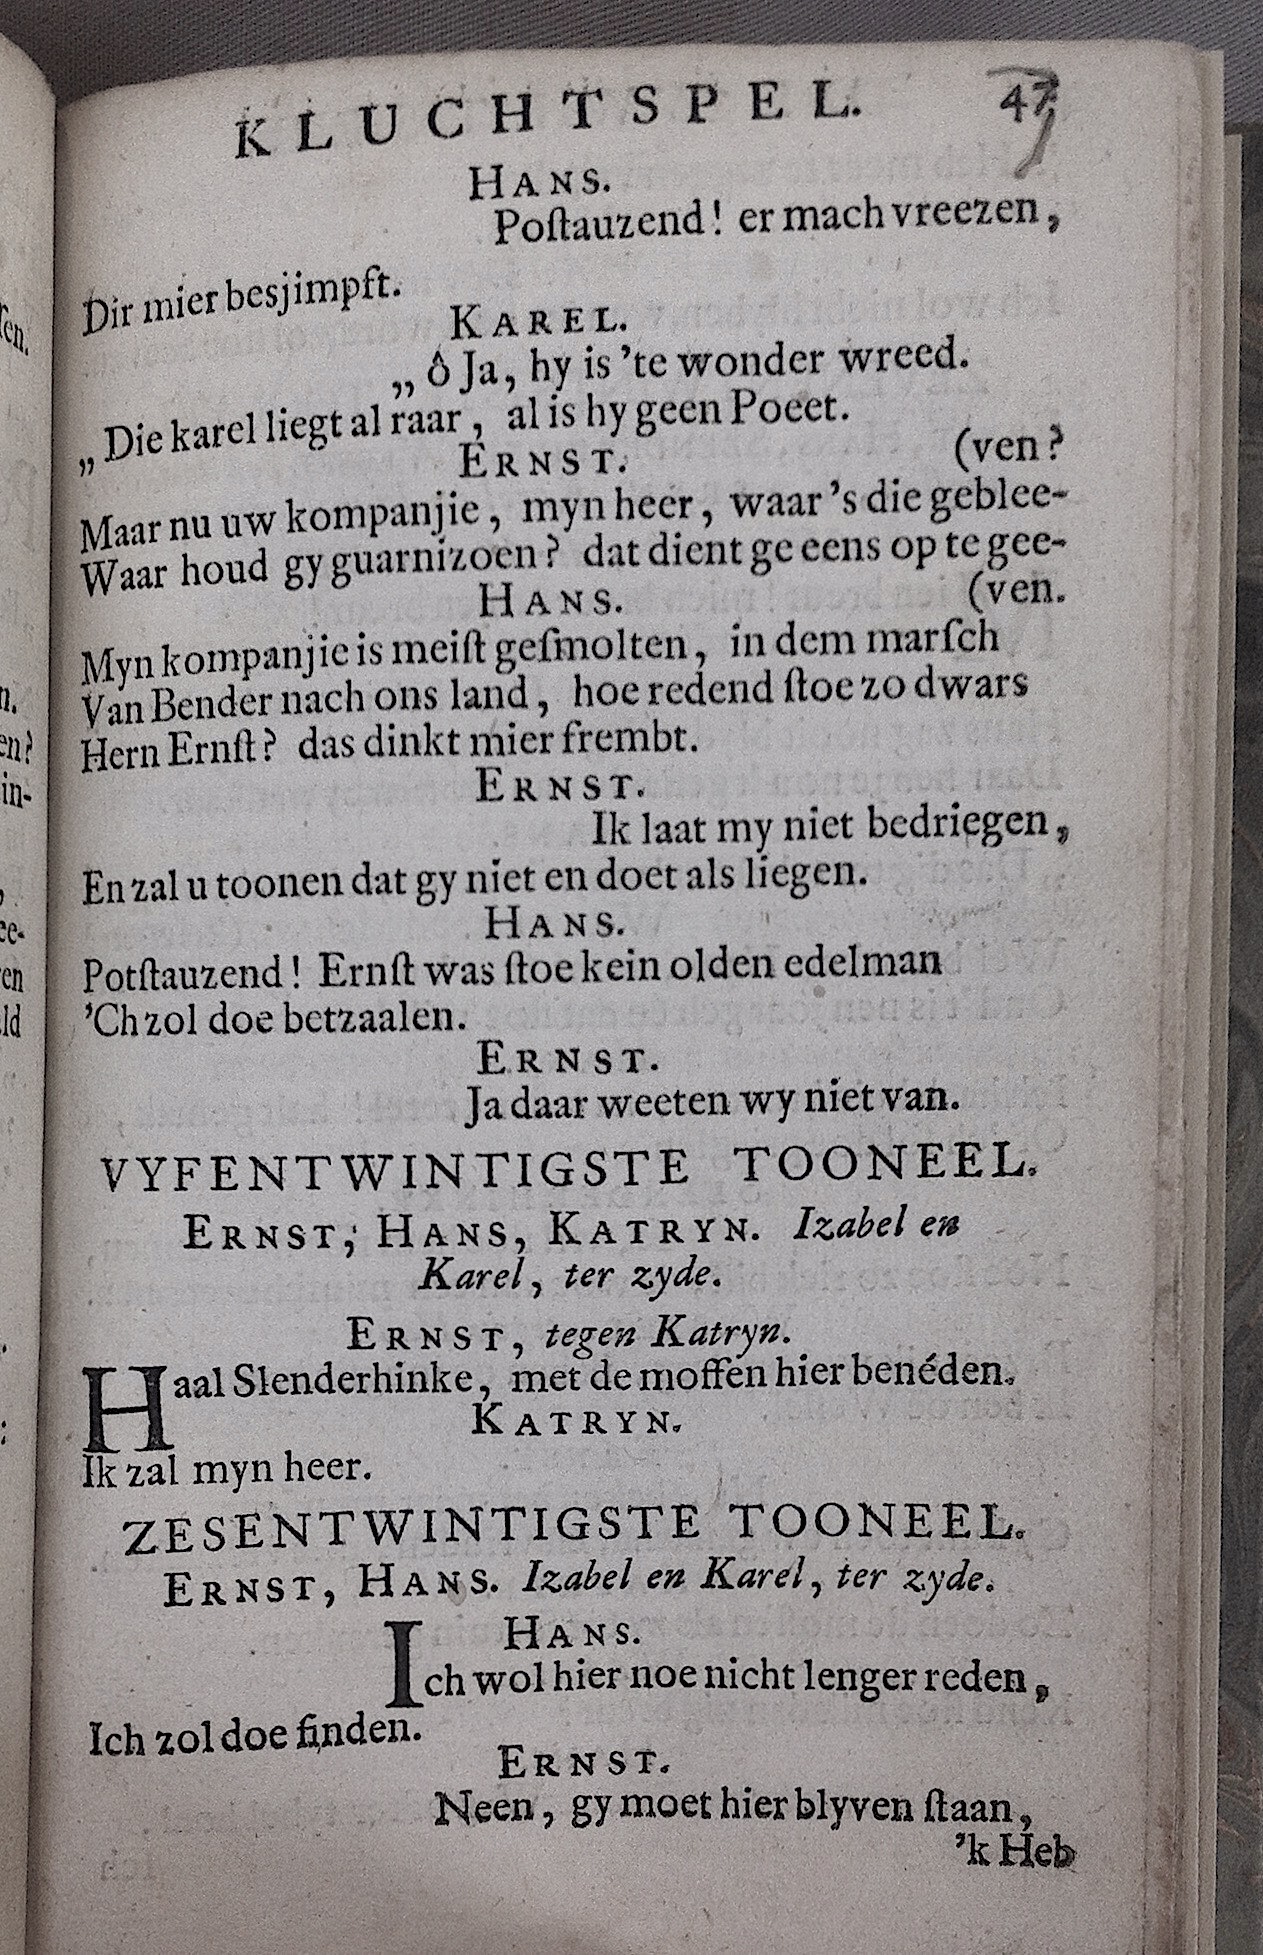 KLUCHTSPEL. 47
HANS.
Poſtauzend! er mach vreezen,
Dir mier besjimpft.
KAREL.
„ ô Ja, hy is 'te wonder wreed.
„ Die karel liegt al raar, al is hy geen Poeet.
ERNST. (ven?
Maar nu uw kompanjie, myn heer, waar 's die geblee-
Waar houd gy guarnizoen? dat dient ge eens op te gee-
HANS. (ven.
Myn kompanjie is meiſt geſmolten, in dem marſch
Van Bender nach ons land, hoe redend ſtoe zo dwars
Hern Ernſt? das dinkt mier frembt.
ERNST.
Ik laat my niet bedriegen,
En zal u toonen dat gy niet en doet als liegen.
HANS.
Potſtauzend! Ernſt was ſtoe kein olden edelman
'Ch zol doe betzaalen.
ERNST.
Ja daar weeten wy niet van.
VYFENTWINTIGSTE TOONEEL.
ERNST, HANS, KATRYN. Izabel en
Karel, ter zyde.
ERNST, tegen Katryn.
Haal Slenderhinke, met de moffen hier benéden.
KATRYN.
Ik zal myn heer.
ZESENTWINTIGSTE TOONEEL.
ERNST, HANS. Izabel en Karel, ter zyde.
HANS.
Ich wol hier noe nicht lenger reden,
Ich zol doe finden.
ERNST.
Neen, gy moet hier blyven ſtaan,
'k Heb